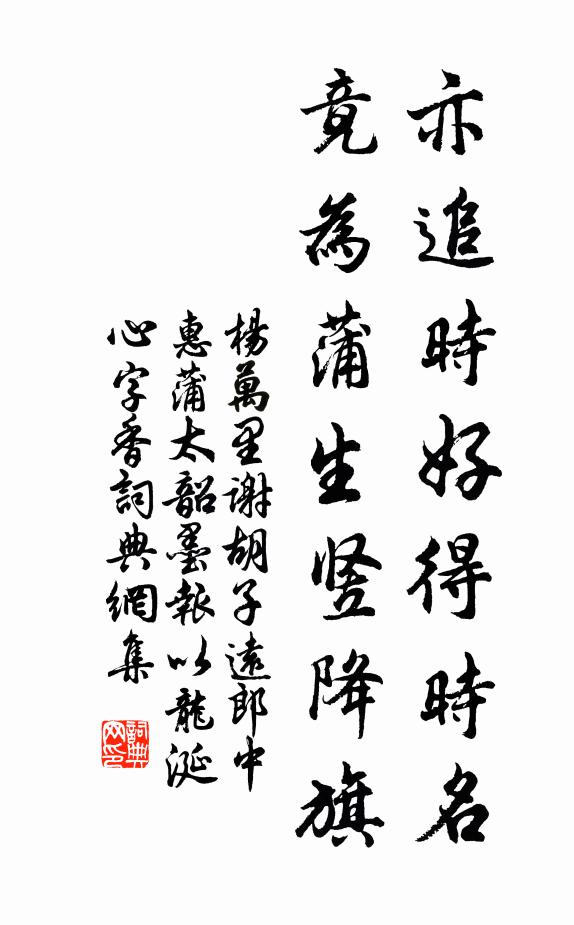 亦追時好得時名
竟為蒲生竖降旗
楊萬里謝胡子遠郎中
惠蒲太韶墨報以龍涎
心字香詞典網集
詞典
网印